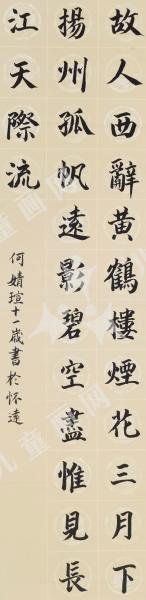 故人西辭黃鶴樓煙花三月下
揚州孤帆遠影碧空盡惟見長
江天際流
何婧瑄十一歲書於怀遠